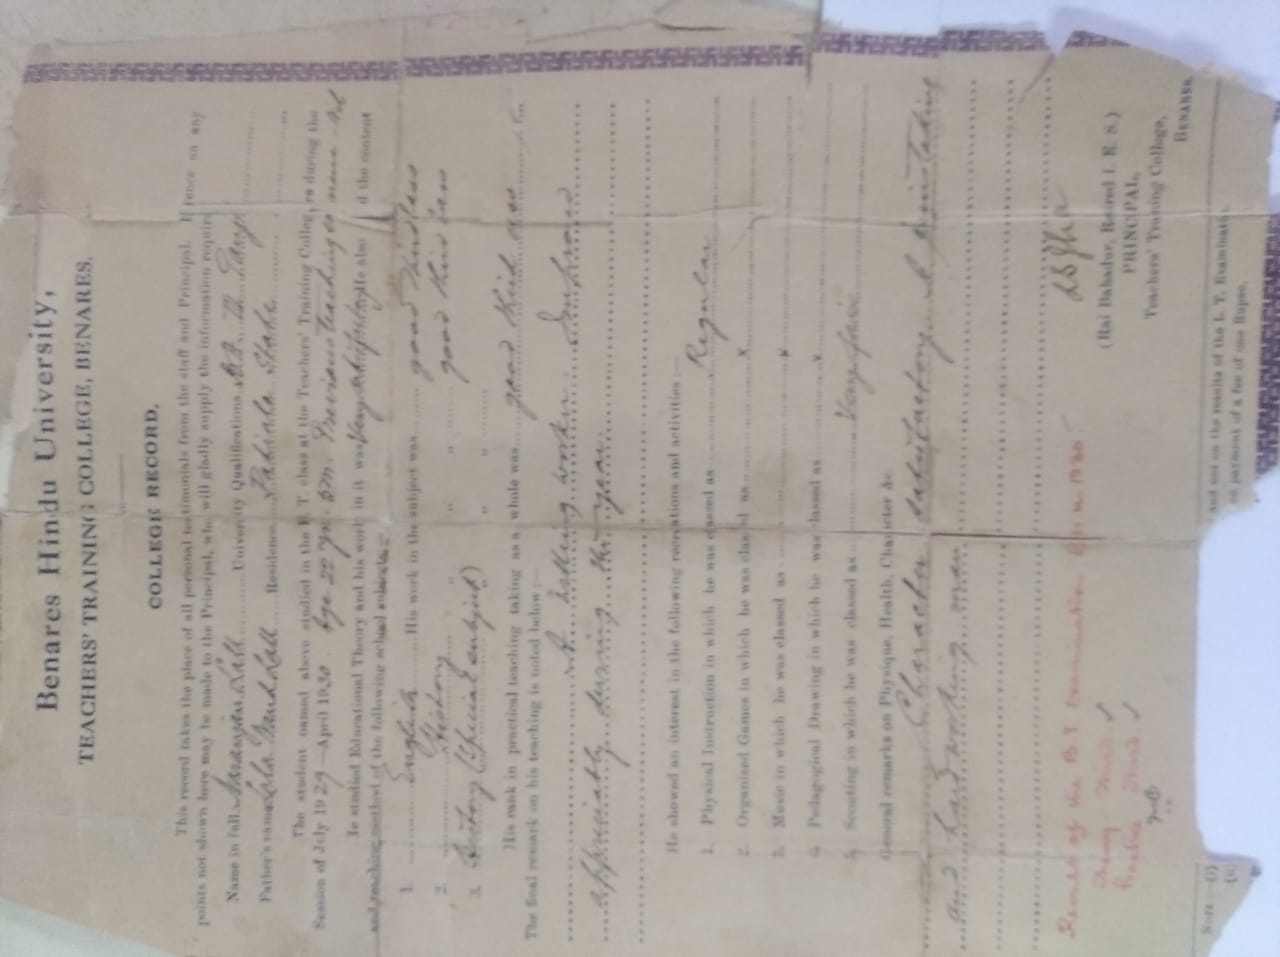 Benares Hindu University,
TEACHERS' TRAINING COLLEGE, BENARES.
COLLEGE RECORD.
This record takes the place of all personal testimonials from the staff and Principal. on any
points not shown here may be made to the Principal, who will gladly supply the information
Name in full Lall University Qualifications
Father's name Lall Residence Patiala State
The student named above studied in the B T class at the Teachers' Training College, during the
Session of July 1929—April 1930. Age 22 yrs. Previous Teaching
He studied Educational Theory and his work in it was Very He also the content
and teaching method of the following school subjects:—
1. English His work in the subject was good third class
2. History " " " good third class
3. History (Special subject) " " "
His rank in practical teaching taking as a whole was good third class
The final remark on his teaching is noted below:—
A willing worker. Improved
appreciably during the year.
He showed an interest in the following recreations and activities:—
1. Physical Instruction in which he was classed as Regular
2. Organized Games in which he was classed as x
3. Music in which he was classed as x
4. Pedagogical Drawing in which he was classed as x
5. Scouting in which he was classed as Very fair
General remarks on Physique, Health, Character &c
Character satisfactory. A painstaking
and hard working man
(Rai Bahadur, Retired I. E. S.)
PRINCIPAL,
Teachers' Training College,
BENARES.
Result of the B. T. Examination 1930:-
Theory Third ✓
Practice Third ✓
NOTE—(i) and not on the results of the L. T. Examination
(ii) on payment of a fee of one Rupee.